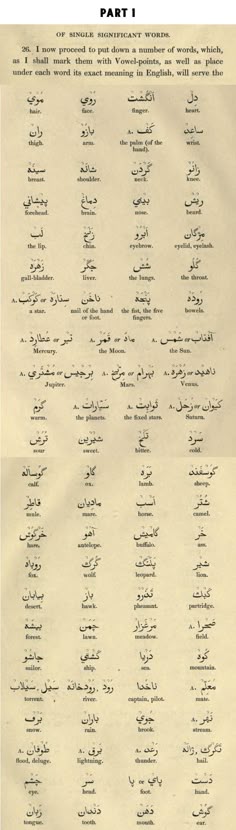 PART I
OF SINGLE SIGNIFICANT WORDS.
26. I now proceed to put down a number of words, which,
as I shall mark them with Vowel-points, as well as place
under each word its exact meaning in English, will serve the
مُوي روي انگشت دل
hair. face. finger. heart.
ران بازو كف A. ساعد
thigh. arm. the palm (of the hand). wrist.
سينه شانه گردن زانو
breast. shoulder. neck. knee.
پيشاني دماغ بيني ريش
forehead. brain. nose. beard.
لب زنخ ابرو مژگان
the lip. chin. eyebrow. eyelid, eyelash.
زهره جگر شش گلو
gall-bladder. liver. the lungs. the throat.
A. ستاره or كوكب ناخن پنجه روده
a star. nail of the hand or foot. the fist, the five fingers. bowels.
A. تير or عطارد A. ماه or قمر A. آفتاب or شمس
Mercury. the Moon. the Sun.
A. برجيس or مشتري A. بهرام or مريخ A. ناهيد or زهره
Jupiter. Mars. Venus.
گرم A. سيارات A. ثوابت A. كيوان or زحل
warm. the planets. the fixed stars. Saturn.
ترش شيرين تلخ سرد
sour sweet. bitter. cold.
گوساله گاو بره گوسفند
calf. ox. lamb. sheep.
قاطر ماديان اسب شتر
mule. mare. horse. camel.
خرگوش آهو گاميش خر
hare. antelope. buffalo. ass.
روباه گرگ پلنگ شير
fox. wolf. leopard. lion.
بيابان باز تذرو كبك
desert. hawk. pheasant. partridge.
بيشه چمن مرغزار A. صحرا
forest. lawn. meadow. field.
جاشو كشتي دريا كوه
sailor. ship. sea. mountain.
سيل, سيلاب رود, رودخانه ناخدا A. معلم
torrent. river. captain, pilot. mate.
برف باران جوي A. نهر
snow. rain. brook. stream.
A. طوفان A. برق A. رعد تگرگ, ژاله
flood, deluge. lightning. thunder. hail.
چشم سر پاي or پا دست
eye. head. foot. hand.
زبان دندان دهن گوش
tongue. tooth. mouth. ear.